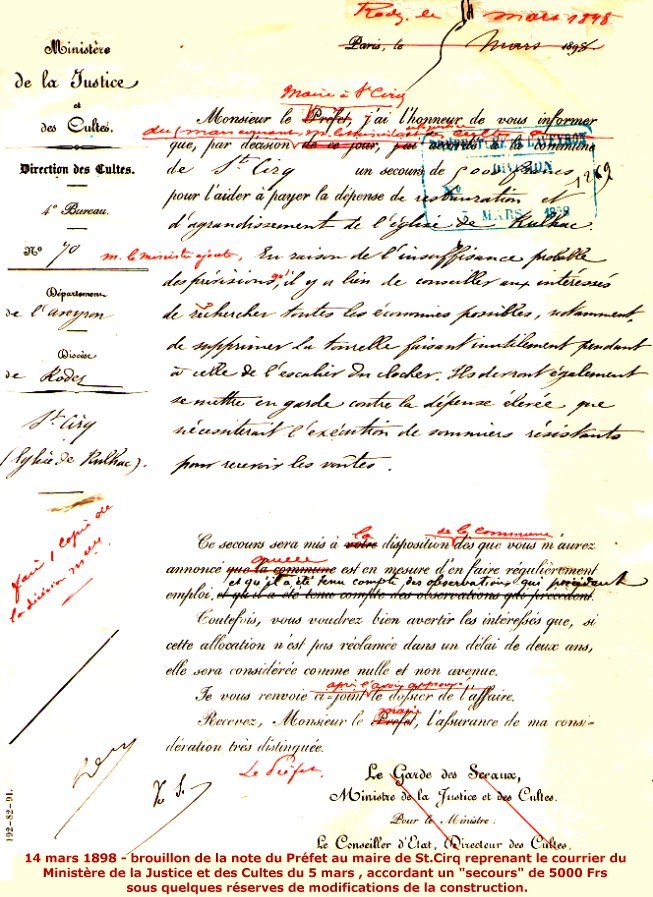 Rodez, le 14 mars 1898
Paris, le mars 1898
Ministère
de la Justice
et
des Cultes.
Direction des Cultes.
4e Bureau.
No 70
Département
de l'aveyron
Diocèse
de Rodez
St Cirq
(Eglise de Rulhac).
Maire à St Cirq
Monsieur le Préfet, j'ai l'honneur de vous informer
du 5 mars courant, M. le ministre des cultes a
que, par décision de ce jour, j'ai accordé à la commune
de St Cirq un secours de 5000 francs
PRÉFECTURE DE L'AVEYRON
DIVISION
No 1262
5 MARS 1898
pour l'aider à payer la dépense de restauration et
d'agrandissement de l'église de Rulhac.
m. le ministre ajoute, En raison de l'insuffisance probable
des prévisions, qu'il y a lieu de conseiller aux intéressés
de rechercher toutes les économies possibles, notamment,
de supprimer la tourelle faisant inutilement pendant
à celle de l'escalier du clocher. Ils devront également
se mettre en garde contre la dépense élevée que
nécessiterait l'exécution de sommiers résistants
pour recevoir les voûtes.
fair 1 copie de
la
la de la commune
Ce secours sera mis à votre disposition dès que vous m'aurez
quelle
annoncé que la commune est en mesure d'en faire régulièrement
et qu'il a été tenu compte des observations qui précèdent
emploi. et qu'il a été tenu compte des observations qui précèdent.
Toutefois, vous voudrez bien avertir les intéressés que, si
cette allocation n'est pas réclamée dans un délai de deux ans,
elle sera considérée comme nulle et non avenue.
après l'avoir approuvé
Je vous renvoie ci-joint le dossier de l'affaire.
maire
Recevez, Monsieur le Préfet, l'assurance de ma consi-
dération très distinguée.
Le Préfet.
Le Garde des Sceaux,
Ministre de la Justice et des Cultes.
Pour le Ministre:
Le Conseiller d'Etat, Directeur des Cultes.
192-82-91.
14 mars 1898 - brouillon de la note du Préfet au maire de St.Cirq reprenant le courrier du
Ministère de la Justice et des Cultes du 5 mars , accordant un "secours" de 5000 Frs
sous quelques réserves de modifications de la construction.